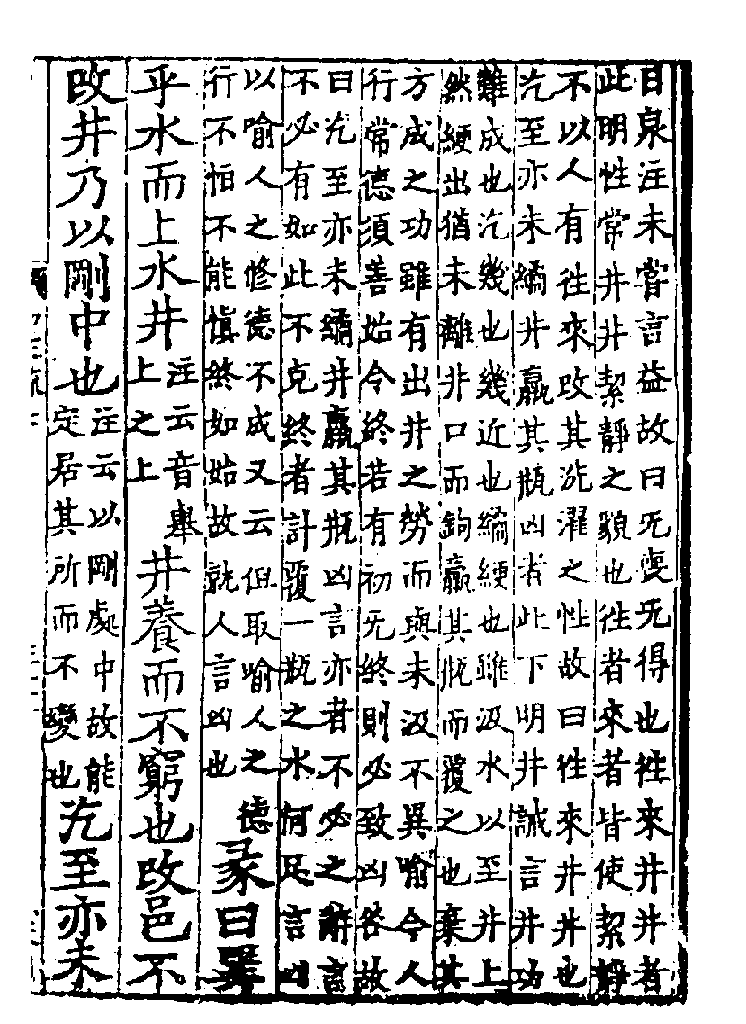 日泉注未嘗言益故曰无喪无得也徃來井井者
此明性常井井絜靜之貌也徃者來者皆使絜靜
不以人有徃來改其洗濯之性故曰徃來井井也
汔至亦未繘井羸其瓶凶者此下明井誡言井功
難成也汔幾也幾近也繘綆也雖汲水以至井上
然綆出猶未離井口而鉤羸其瓶而覆之也棄其
方成之功雖有出井之勞而與未汲不異喻今人
行常德須善始令終若有初无終則必致凶咎故
曰汔至亦未繘井羸其瓶凶言亦者不必之辭言
不必有如此不克終者計覆一瓶之水何足言凶
以喻人之修德不成又云但取喻人之德
行不恒不能慎終如始故就人言凶也
彖曰巽
乎水而上水井
注云音舉
上之上
井養而不窮也改邑不
改井乃以剛中也
注云以剛處中故能
定居其所而不變也
汔至亦未